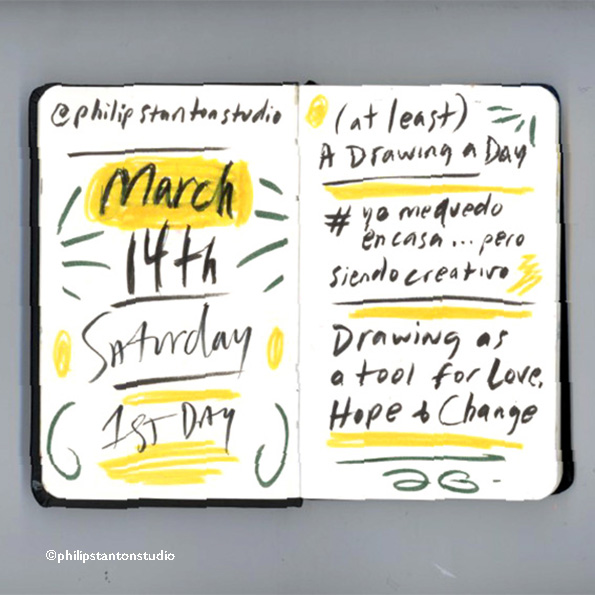 @philipstantonstudio
March
14th
Saturday
1ST DAY
(at least)
A Drawing a Day
# yo me quedo
en casa... pero
siendo creativo
Drawing as
a tool for Love,
Hope & Change
©philipstantonstudio